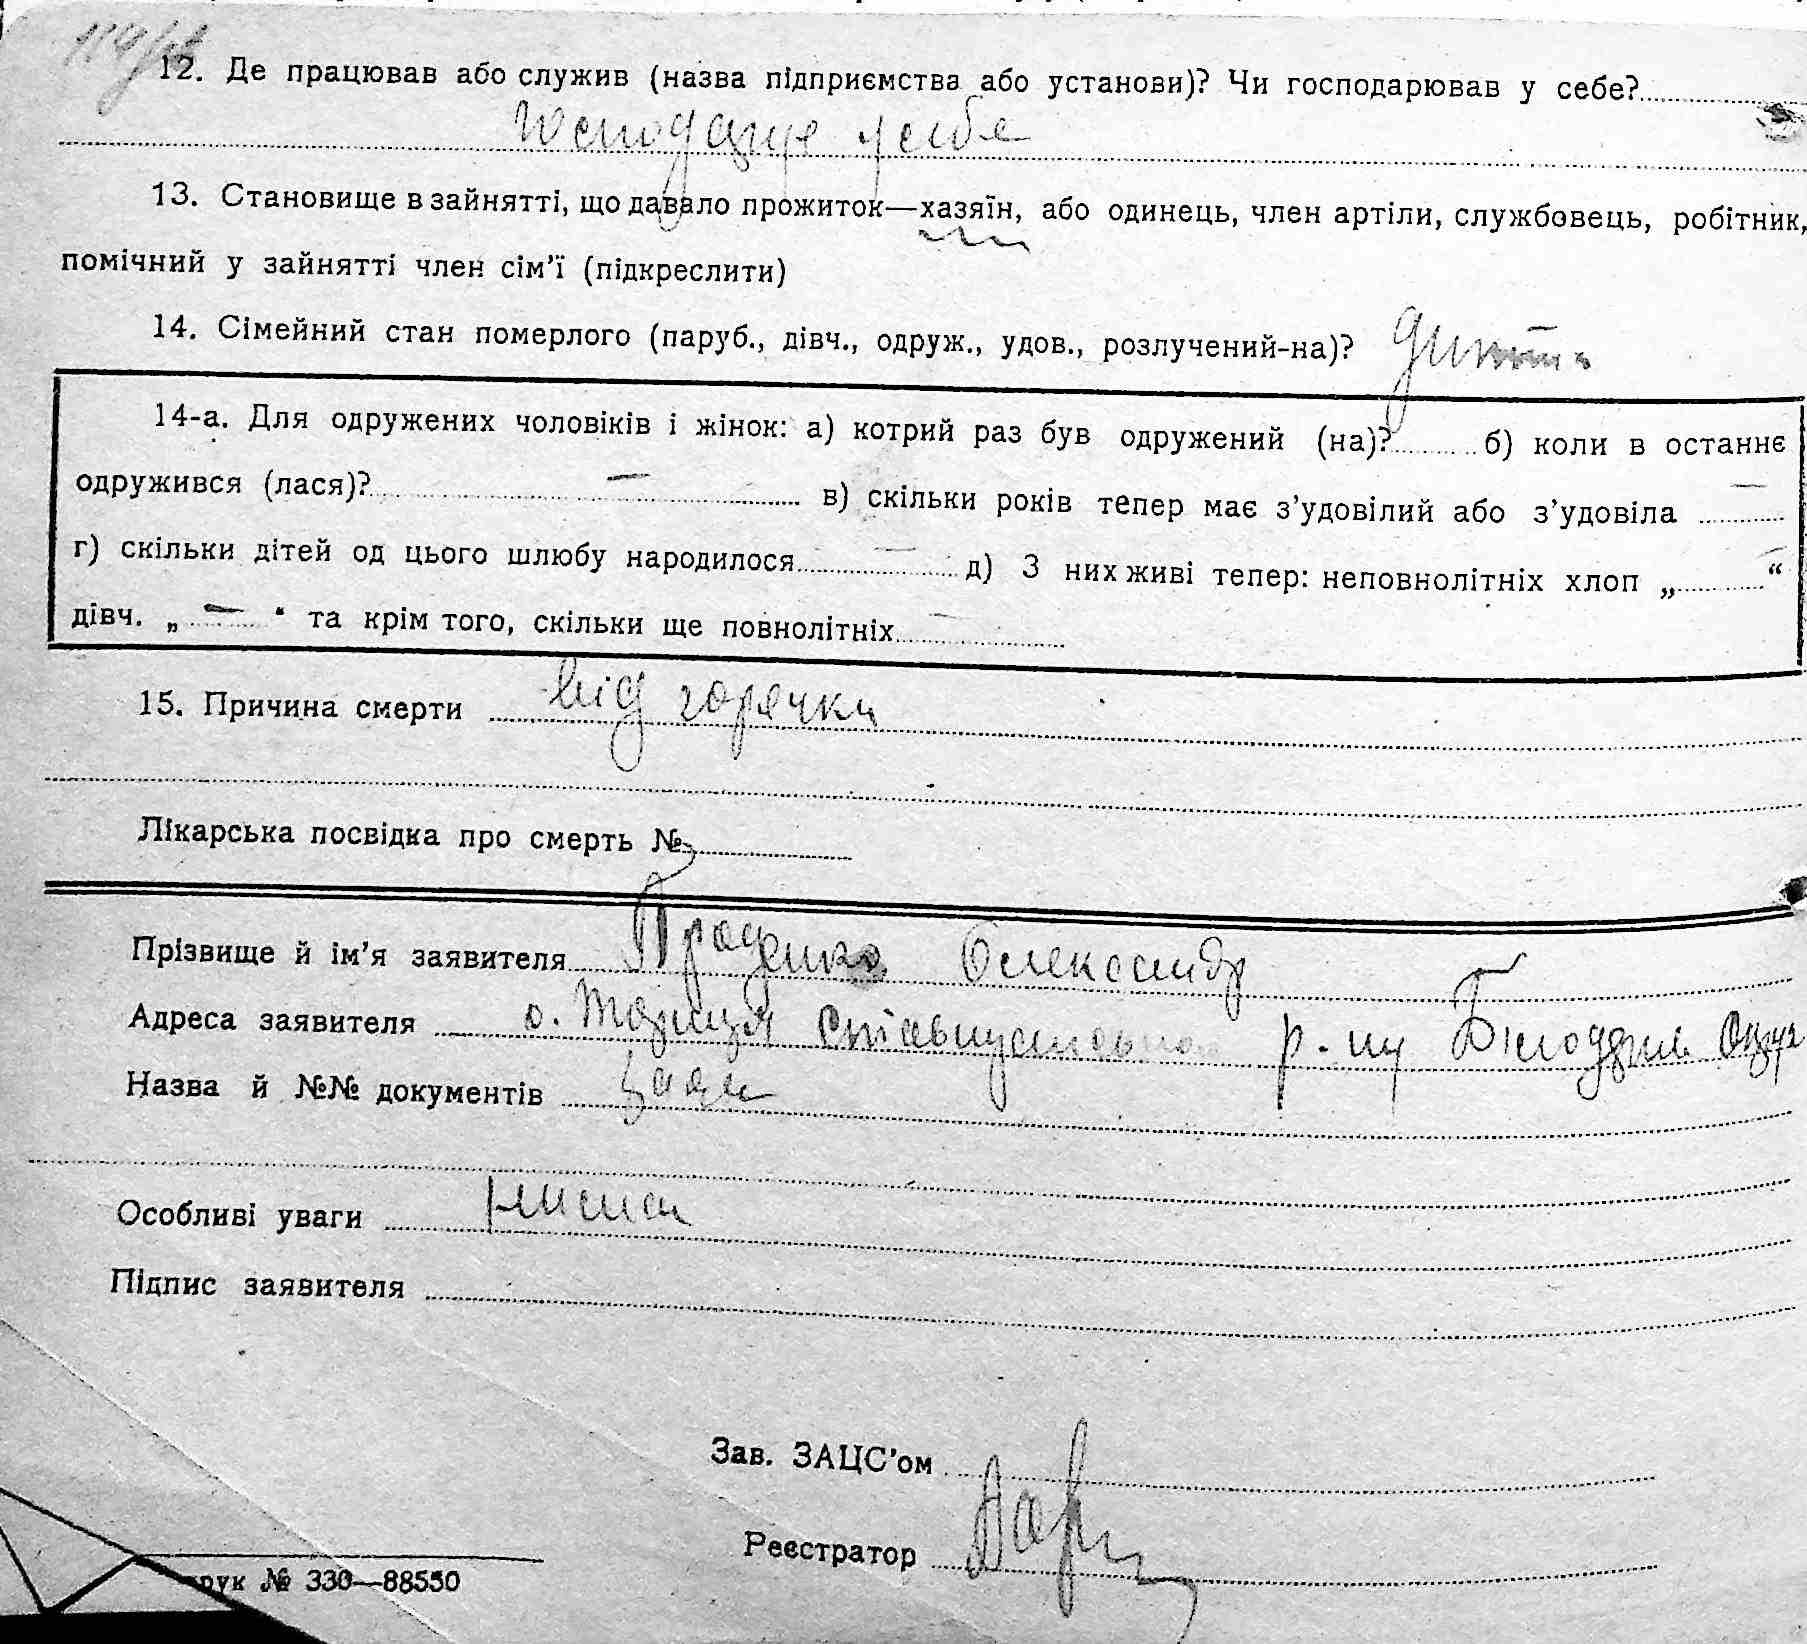 12. Де працював або служив (назва підприємства або установи)? Чи господарював у себе?
Господарує у себе
13. Становище в зайнятті, що давало прожиток—хазяїн, або одинець, член артіли, службовець, робітник,
помічний у зайнятті член сім’ї (підкреслити)
14. Сімейний стан померлого (паруб., дівч., одруж., удов., розлучений-на)? дитина
14-а. Для одружених чоловіків і жінок: а) котрий раз був одружений (на)? б) коли в останнє
одружився (лася)? — в) скільки років тепер має з’удовілий або з’удовіла —
г) скільки дітей од цього шлюбу народилося — д) З них живі тепер: неповнолітніх хлоп „ — “
дівч. „ — “ та крім того, скільки ще повнолітніх —
15. Причина смерти від горячки
Лікарська посвідка про смерть №
Прізвище й ім’я заявителя Проценко Олександр
Адреса заявителя р-ну
Назва й №№ документів
Особливі уваги
Підпис заявителя
Зав. ЗАЦС’ом
Реєстратор
рук № 330—88550